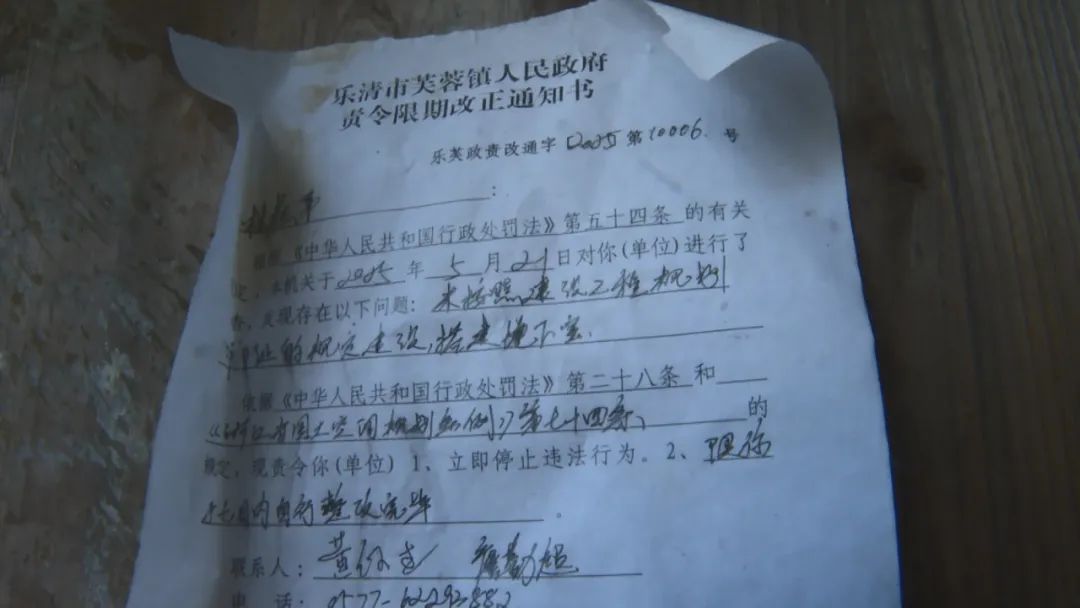 乐清市芙蓉镇人民政府
责令限期改正通知书
乐芙政责改通字 2025 第 10006 号
:
依据《中华人民共和国行政处罚法》第五十四条 的有关
定，本机关于 2025 年 5 月 21 日对你(单位)进行了
查，发现存在以下问题: 未按照建设工程规划
许可证的规定建设，搭建地下室。
依据《中华人民共和国行政处罚法》第二十八条 和
《浙江省国土空间规划条例》第七十四条、 的
规定，现责令你(单位) 1、立即停止违法行为。2、限你
日内自行整改完毕 。
联系人: 黄
电 话: 0577-62293882